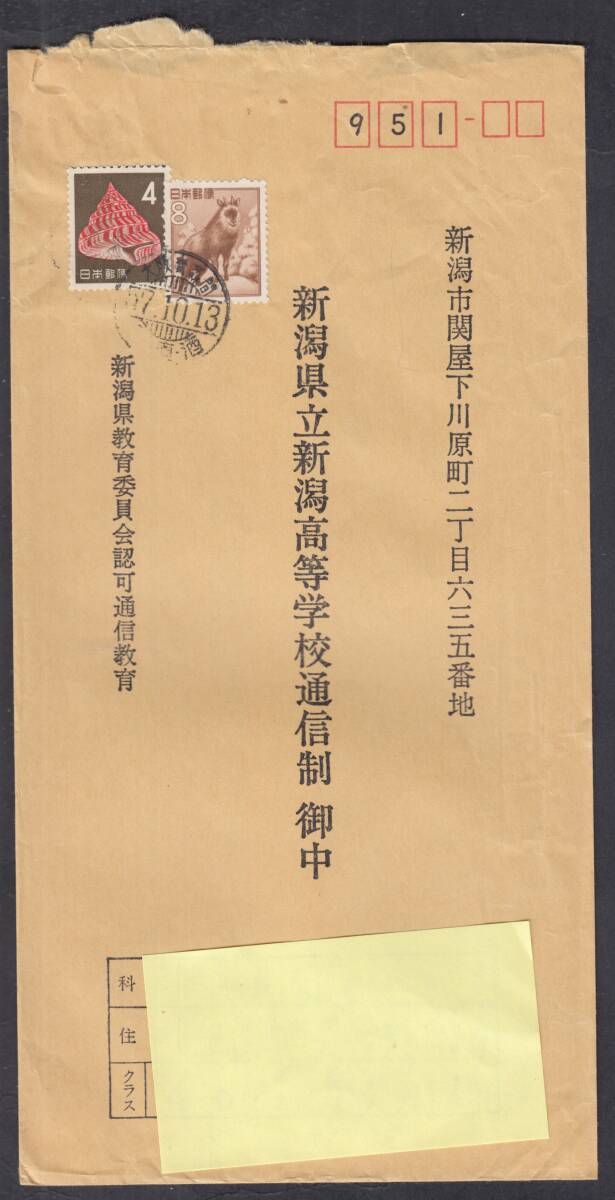 951-
4
日本郵便
日本郵便
8
7.10.13
新潟市関屋下川原町二丁目六三五番地
新潟県立新潟高等学校通信制 御中
新潟県教育委員会認可通信教育
科
住
クラス